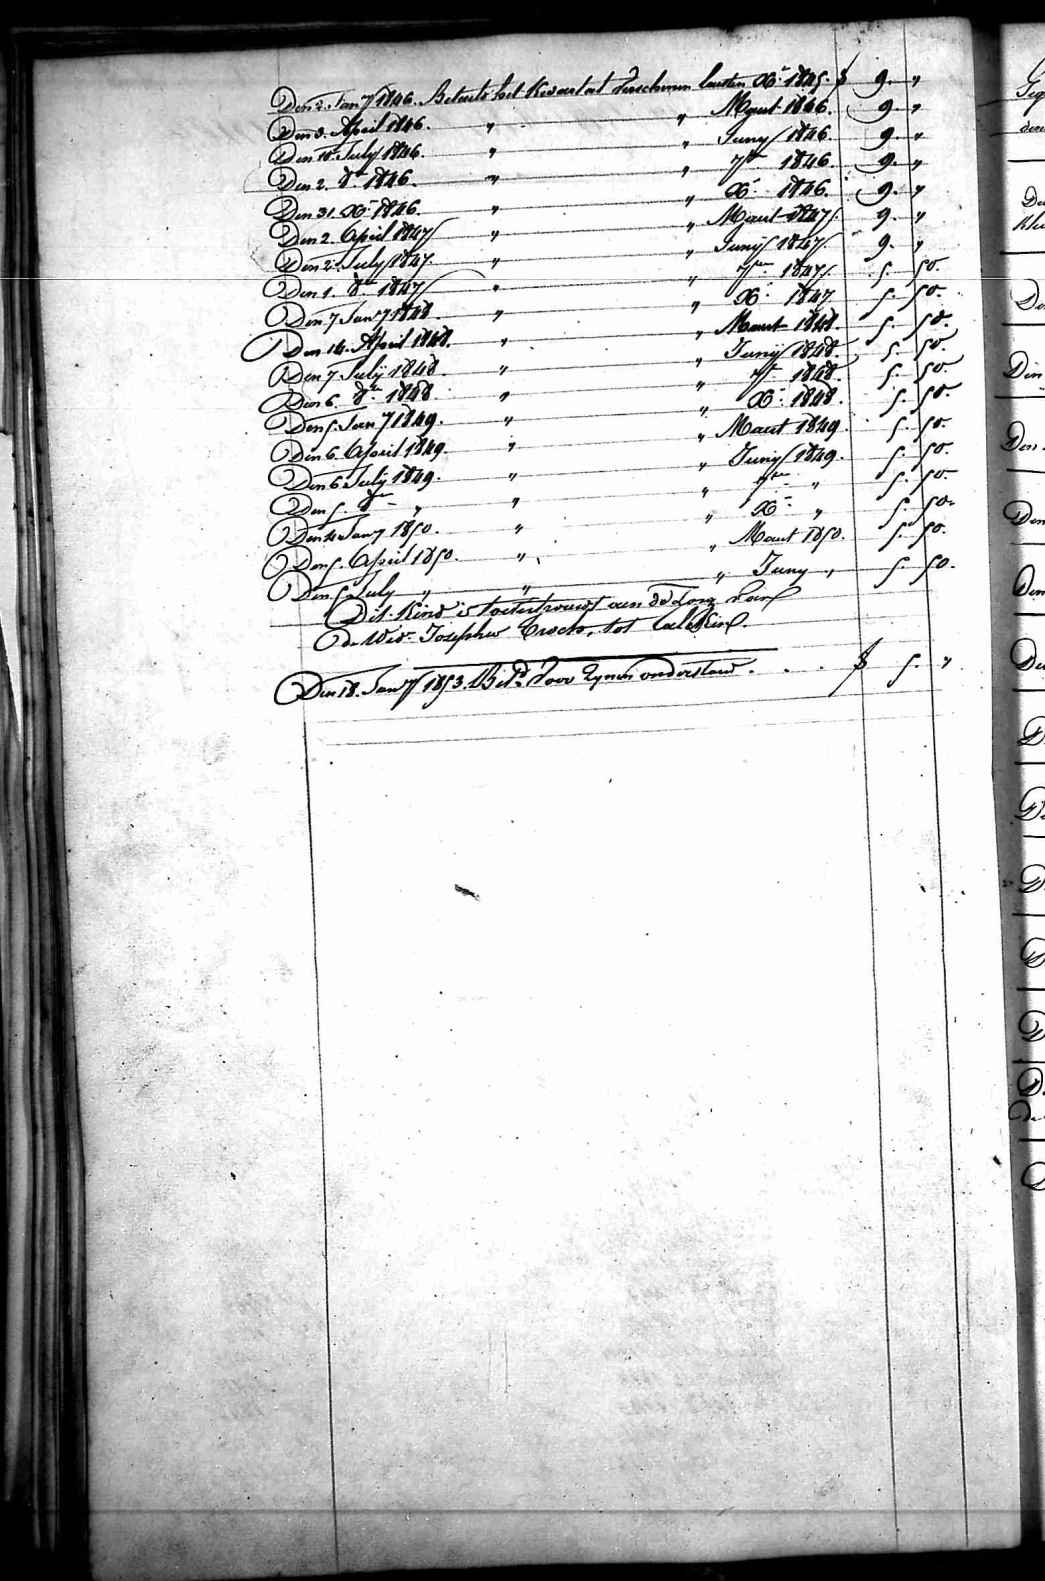 Den 2. Jan^y 1846. Betaelt het Kwartael verschenen laesten Xb^r 1845. f 9. "
Den 3. April 1846. " " Maert 1846. 9. "
Den 10. July 1846. " " Juny 1846. 9. "
Den 2. 8^br 1846. " " 7^br 1846. 9. "
Den 31. Xb^r 1846. " " Xb^r 1846. 9. "
Den 2. April 1847 " " Maert 1847. 9. "
Den 2. July 1847. " " Juny 1847. 9. "
Den 1. 8^br 1847 " " 7^br 1847. 5. 50.
Den 7 Jan^y 1848. " " Xb^r 1847 5. 50.
Den 14. April 1848. " " Maert 1848. 5. 50.
Den 7 July 1848 " " Juny 1848. 5. 50.
Den 6. 8^br 1848. " " 7^br 1848. 5. 50.
Den 5 Jan^y 1849. " " Xb^r 1848. 5. 50.
Den 6. April 1849. " " Maert 1849 5. 50.
Den 6 July 1849. " " Juny 1849. 5. 50.
Den 5. 8^br " " " 7^br " 5. 50.
Den 4 Jan^y 1850. " " Xb^r " 5. 50.
Den 5. April 1850. " " Maert 1850. 5. 50.
Den 5 July " " " Juny " 5. 50.
Dit Kind is toevertrouwt aen de zorg van
de Wed^e Josephus tot
Den 18. Jan^y 1853. Bet^d voor zynen onderstand . . . f 5. "
Den
Den
Den
Den